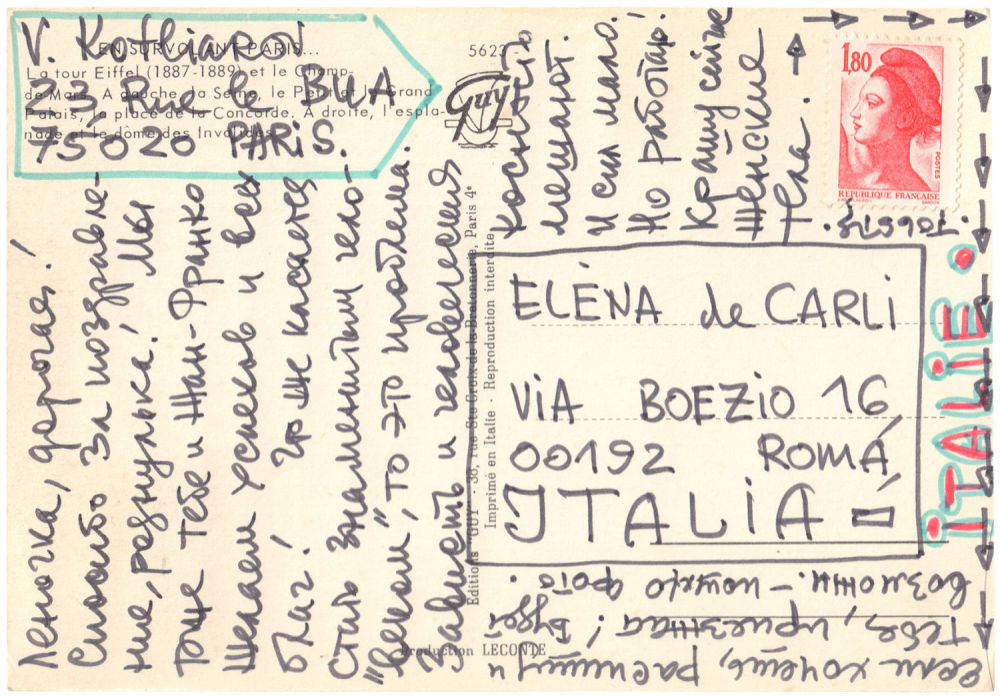 V. Kotliarov
23 Rue le BuA
75020 PARIS.
EN SURVOLANT PARIS...
La tour Eiffel (1887-1889) et le Champ-
de-Mars. A gauche, la Seine, le Petit et le Grand
Palais, la place de la Concorde. A droite, l'espla-
nade et le dôme des Invalides.
5622
Guy
Леночка, дорогая!
Спасибо за поздравле-
ние, роднулька! Мы
тоже тебе и Жан-Франко
желаем успехов и всех
благ! Что же касается
стать знаменитым чело-
"веком", то это проблема.
Зависть и человеческая
косность
мешают.
И сил мало.
Но работаю!
Крашу сейчас
женские
тела.
Editions "GUY" - 38, rue Ste-Croix-de-la-Bretonnerie, Paris 4e
Imprimé en Italie - Reproduction interdite
Production LECONTE
1,80
REPUBLIQUE FRANÇAISE
POSTES
ELÉNA de CARLI
ViA BOEZiO 16
00192 ROMÁ
ITALiA
iTALiE.
если хочешь, распишу и
тебя, приезжай! Будет
возможн. - пошлю фото.